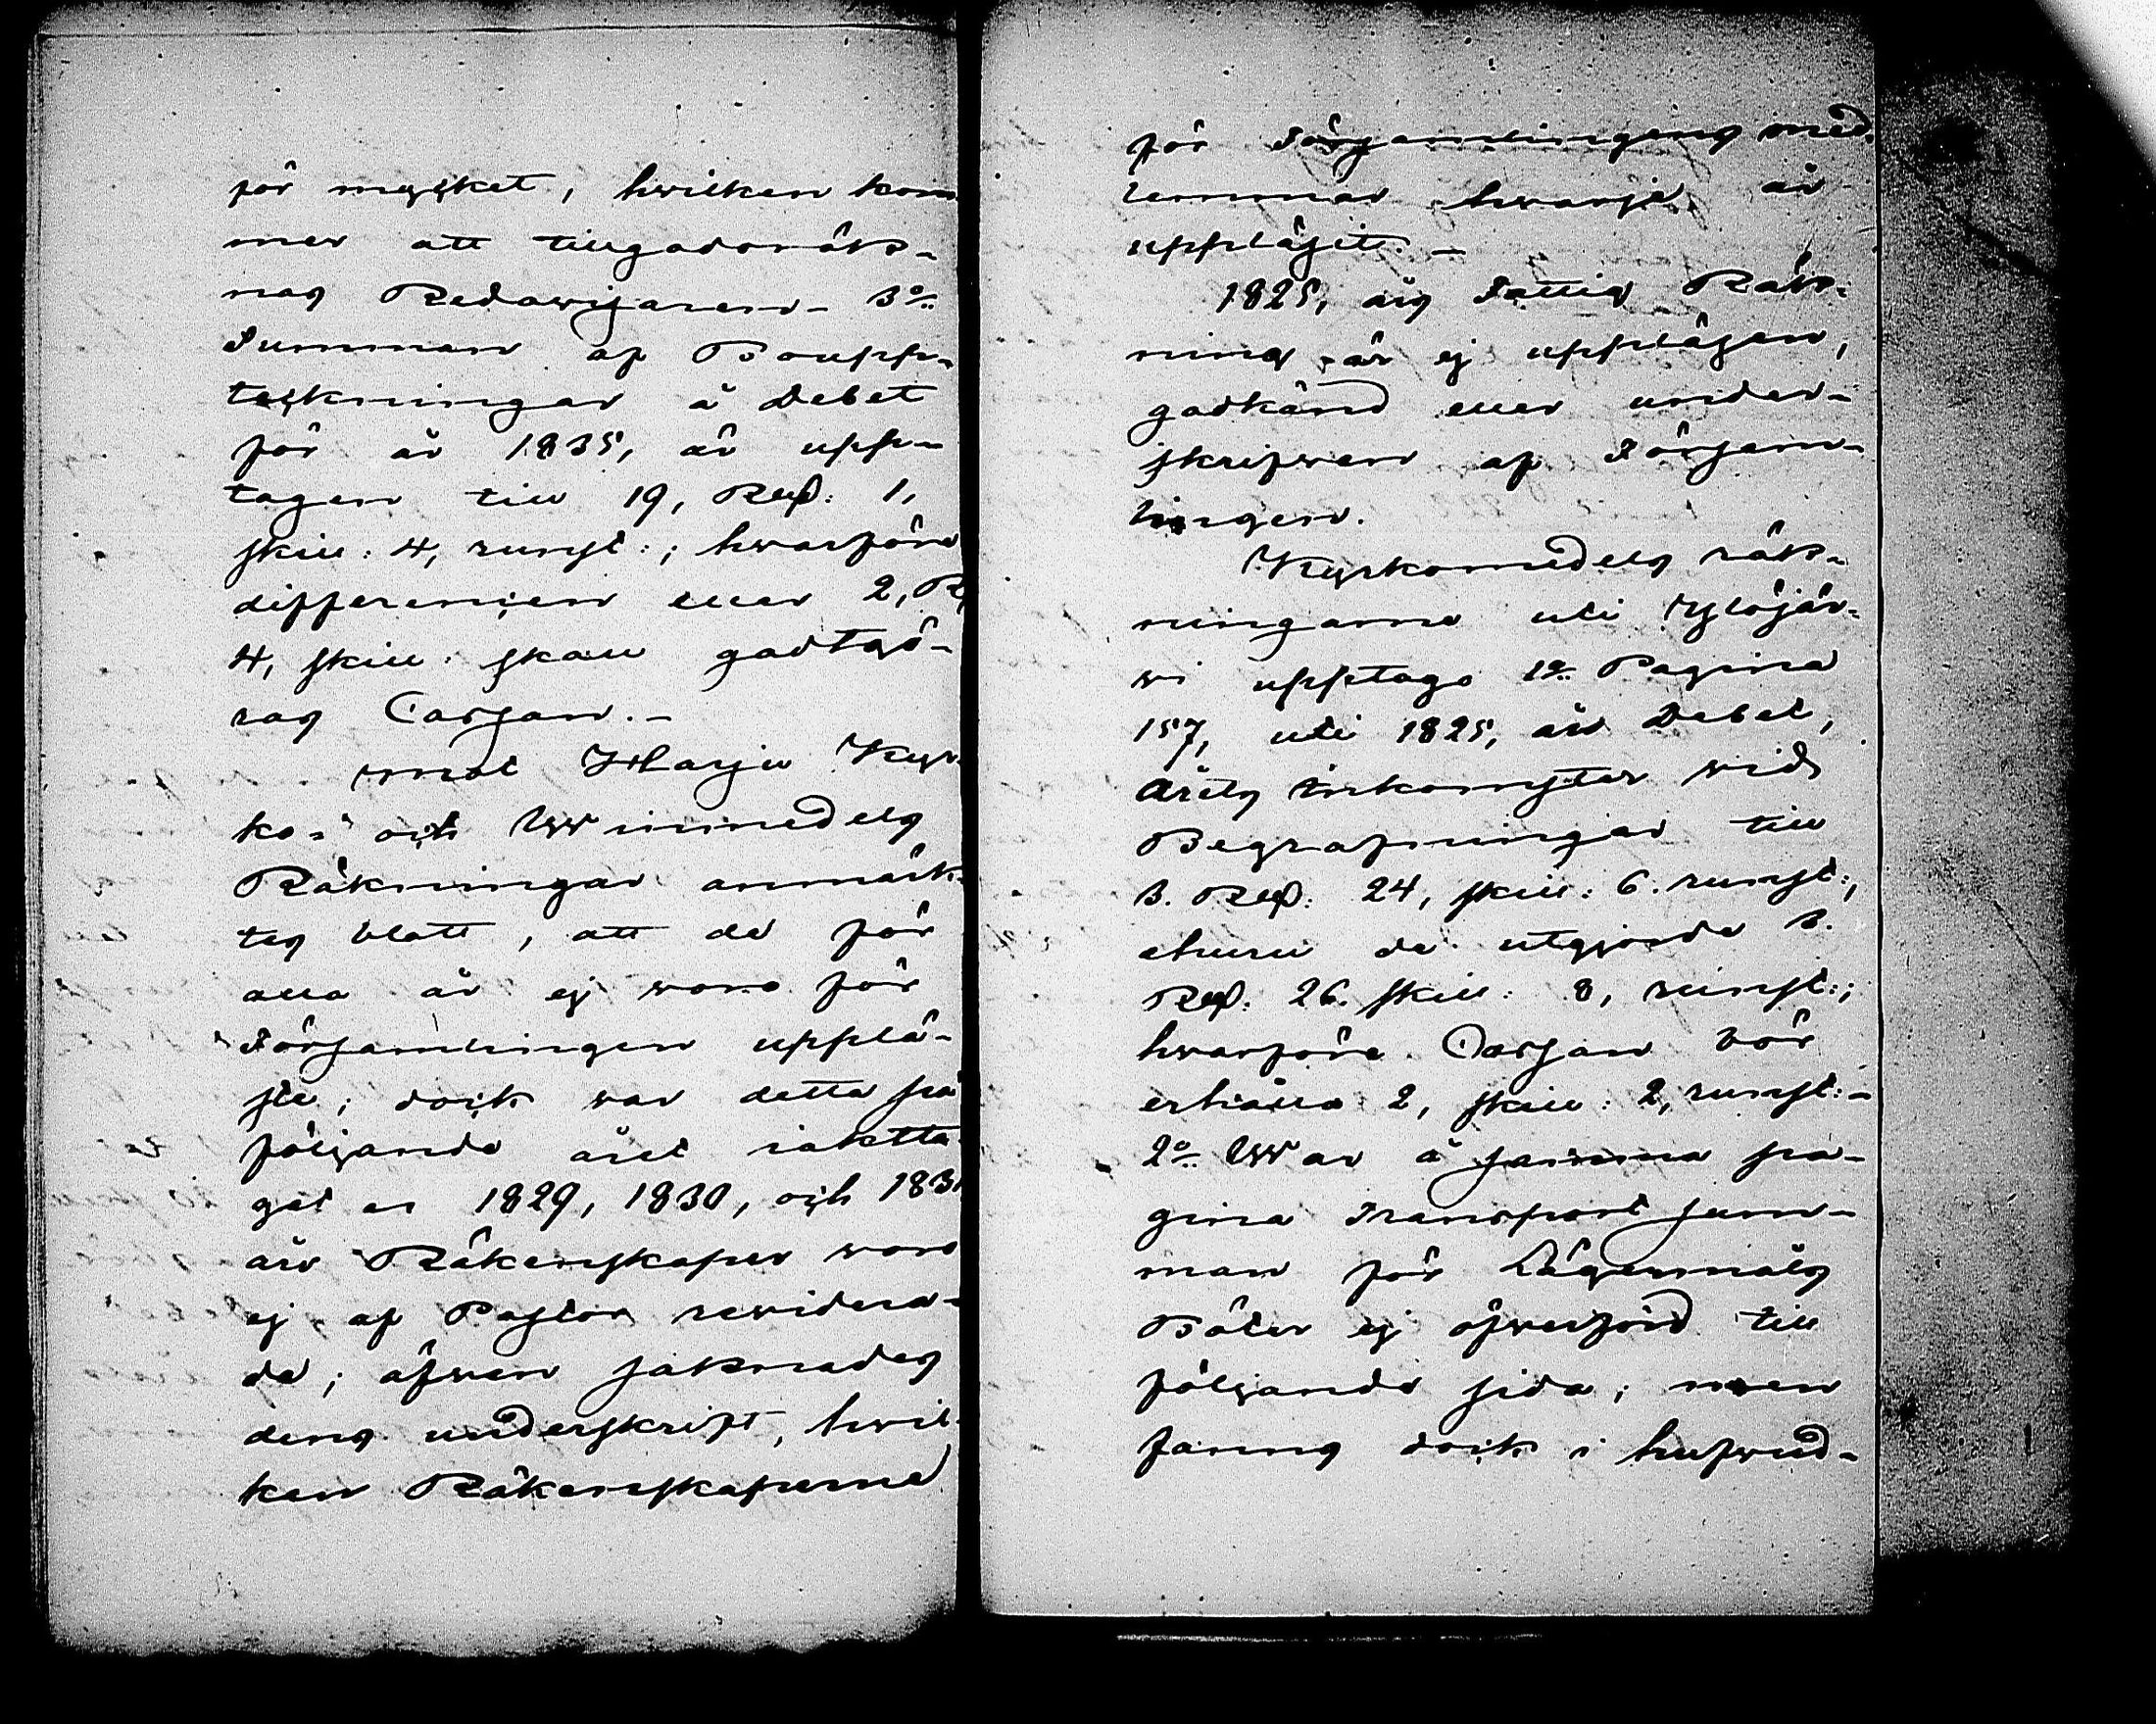 för mycket, hvilken kom-
mer att tillgodoräk-
nas Redovisaren – 3:o
Summan af Boupp-
teckningar å Debet
för år 1835, är upp-
tagen till 19, Rub: 1,
skill: 4, runst:; hvarföre
differencen eller 2, R,
4, skill: skall godtgö-
ras Cassan. –
Mot Harju Kyr-
ko- och Winmedels
Räkningar anmärk-
tes blott, att de för
alla år ej woro för
Församlingen upplä-
ste; dock var detta på
följande året iaktta-
get ar 1829, 1830, och 1831
års Räkenskaper woro
ej af Pastor revidera-
de; äfwen saknades
dens underskrift, hvil-
ken Räkenskaperne
för Församlingens med-
lemmar hwarje år
uppläsit. –
1825, års Fattig Räk-
ning är ej uppläsen,
godkänd eller under-
skrifwen af Försam-
lingen.
Kyrkomedels räk-
ningarne uti Ylöjär-
wi upptogo 1:o Pagina
157, uti 1825, års Debet,
årets inkomster wid
Begrafningar till
3. Rub: 24, skill: 6. runst:,
ehuru de utgjorde 3.
Rub: 26. skill: 8, runst:;
hwarföre Cassan bör
erhålla 2, skill: 2, runst: –
2:o War å samma pa-
gina Transport sum-
man för Lägersmåls
Böter ej öfwerförd till
följande sida; men
fanns dock i hufwud-